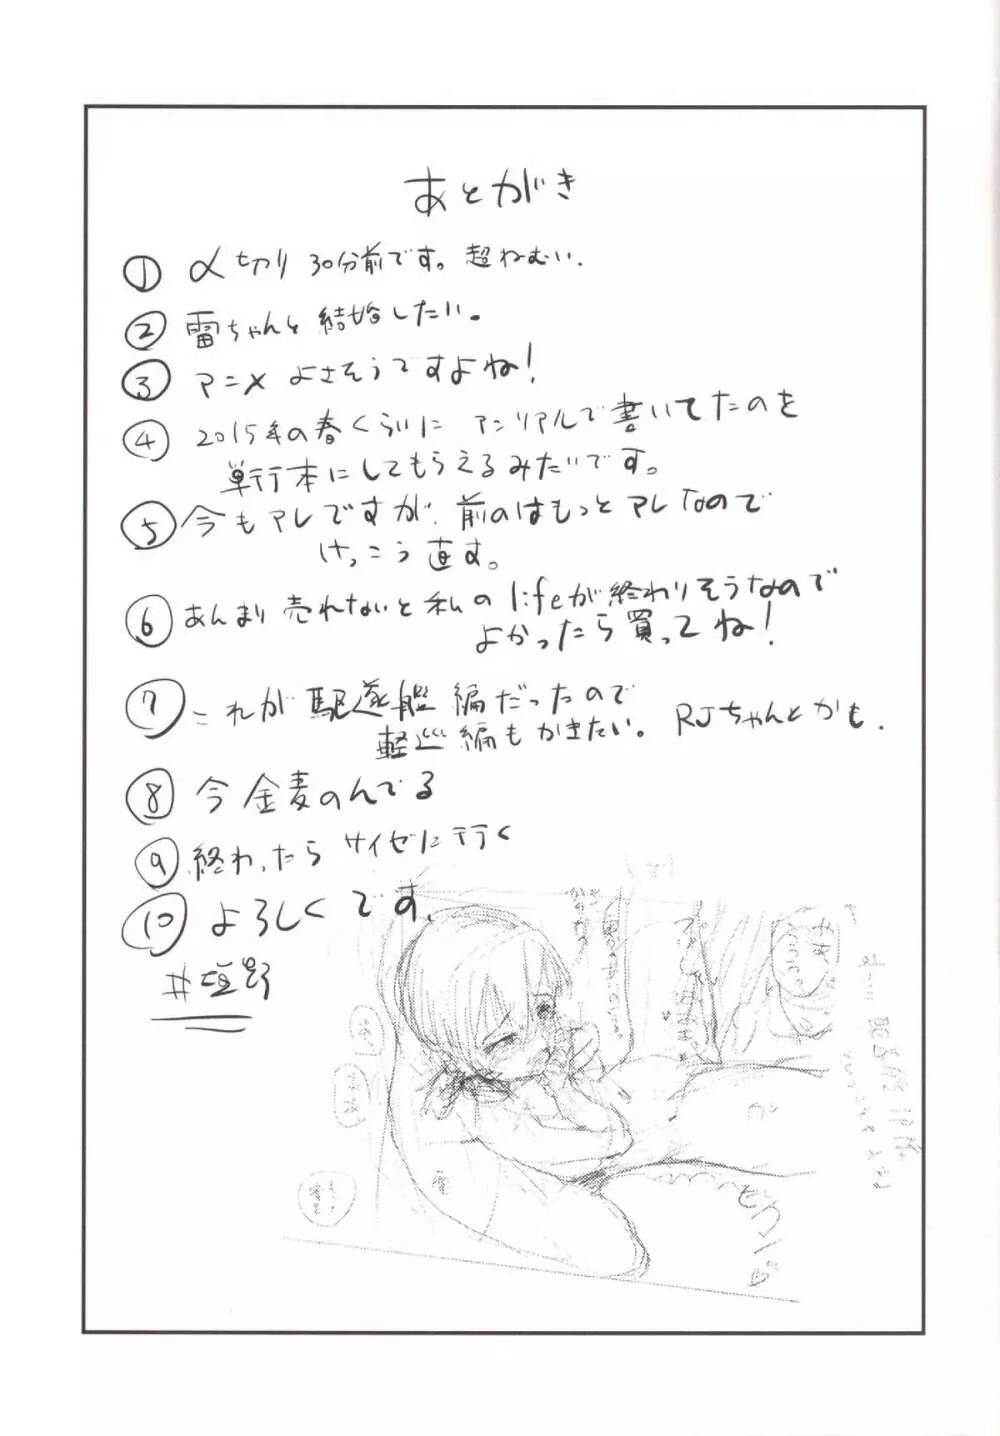 あとがき
① 〆切り 30分前です。超ねむい.
② 雷ちゃんと結婚したい。
③ アニメ よさそうですよね!
④ 2015年の春くらいに アンリアルで書いてたのを
単行本にしてもらえるみたいです。
⑤ 今もアレですが、前のはもっとアレなので
けっこう直す。
⑥ あんまり売れないと私のlifeが終わりそうなので
よかったら買ってね!
⑦ これが駆逐艦編だったので
軽巡編もかきたい。 RJちゃんとかも.
⑧ 今 金麦のんでる
⑨ 終わったら サイゼに行く
⑩ よろしくです.